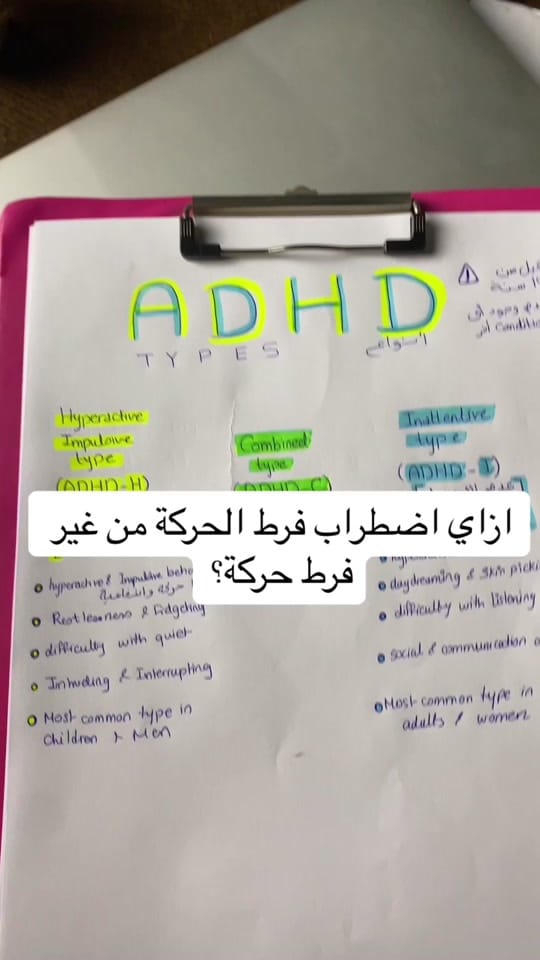 ADHD
TYPES
انواع
⚠ قبل سن
سنة
وجود اى
Condition اخر
Hyperactive
Impulsive
type
(ADHD-H)
Combined
type
(ADHD-C)
Inattentive
type
(ADHD-I)
ازاي اضطراب فرط الحركة من غير
فرط حركة؟
hyperactive & Impulsive
حركة واندفاعية
Restlessness & Fidgeting
difficulty with quiet
Intruding & Interrupting
Most common type in
Children & Men
daydreaming & Skin
difficulty with listening
social & communication
Most common type in
adults & women